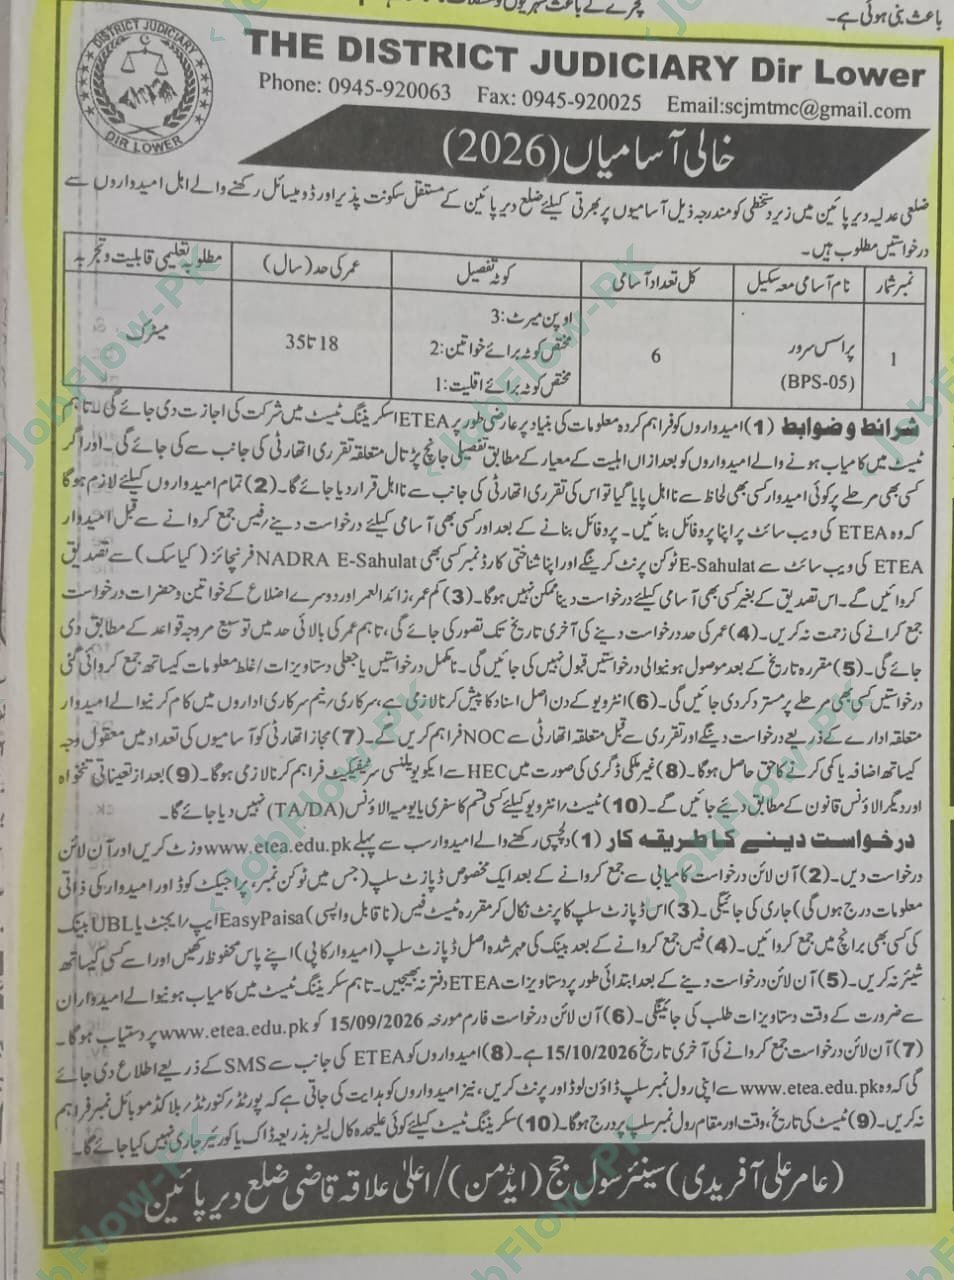 باعث بنی ہوئی ہے۔
THE DISTRICT JUDICIARY Dir Lower
DISTRICT JUDICIARY
DIR LOWER
Phone: 0945-920063 Fax: 0945-920025 Email:scjmtmc@gmail.com
خالی آسامیاں (2026)
ضلعی عدلیہ دیر پائین میں زیر دستخطی کو مندرجہ ذیل آسامیوں پر بھرتی کیلئے ضلع دیر پائین کے مستقل سکونت پذیر اور ڈومیسائل رکھنے والے اہل امیدواروں سے
درخواستیں مطلوب ہیں۔
نمبر شمار نام آسامی معہ سکیل کل تعداد آسامی کوٹہ تفصیل عمر کی حد (سال) مطلوبہ تعلیمی قابلیت و تجربہ
1 پراسس سرور (BPS-05) 6 اوپن میرٹ: 3 18 تا 35 میٹرک
مختص کوٹہ برائے خواتین: 2
مختص کوٹہ برائے اقلیت: 1
شرائط و ضوابط (1) امیدواروں کو فراہم کردہ معلومات کی بنیاد پر عارضی طور پر ETEA اسکریننگ ٹیسٹ میں شرکت کی اجازت دی جائے گی۔ تاہم
ٹیسٹ میں کامیاب ہونے والے امیدواروں کو بعد ازاں اہلیت کے معیار کے مطابق تفصیلی جانچ پڑتال متعلقہ تقرری اتھارٹی کی جانب سے کی جائے گی۔ اور اگر
کسی بھی مرحلے پر کوئی امیدوار کسی بھی لحاظ سے نااہل پایا گیا تو اس کی تقرری اتھارٹی کی جانب سے نااہل قرار دیا جائے گا۔ (2) تمام امیدواروں کیلئے لازم ہوگا
کہ وہ ETEA کی ویب سائٹ پر اپنا پروفائل بنائیں۔ پروفائل بنانے کے بعد اور کسی بھی آسامی کیلئے درخواست دینے/ فیس جمع کروانے سے قبل امیدوار
ETEA کی ویب سائٹ سے E-Sahulat ٹوکن پرنٹ کرینگے اور اپنا شناختی کارڈ نمبر کسی بھی NADRA E-Sahulat فرنچائز (کیاسک) سے تصدیق
کروائیں گے۔ اس تصدیق کے بغیر کسی بھی آسامی کیلئے درخواست دینا ممکن نہیں ہوگا۔ (3) کم عمر، زائد العمر اور دوسرے اضلاع کے خواتین و حضرات درخواست
جمع کرانے کی زحمت نہ کریں۔ (4) عمر کی حد درخواست دینے کی آخری تاریخ تک تصور کی جائے گی، تاہم عمر کی بالائی حد میں توسیع مروجہ قواعد کے مطابق دی
جائے گی۔ (5) مقررہ تاریخ کے بعد موصول ہونیوالی درخواستیں قبول نہیں کی جائیں گی۔ نامکمل درخواستیں یا جعلی دستاویزات/ غلط معلومات کیساتھ جمع کروائی گئی
درخواستیں کسی بھی مرحلے پر مسترد کر دی جائیں گی۔ (6) انٹرویو کے دن اصل اسناد کا پیش کرنا لازمی ہے، سرکاری/ نیم سرکاری اداروں میں کام کرنیوالے امیدوار
متعلقہ ادارے کے ذریعے درخواست دینگے اور تقرری سے قبل متعلقہ اتھارٹی سے NOC فراہم کریں گے۔ (7) مجاز اتھارٹی کو آسامیوں کی تعداد میں معقول وجہ
کیساتھ اضافہ یا کمی کرنے کا حق حاصل ہوگا۔ (8) غیر ملکی ڈگری کی صورت میں HEC سے ایکویولینسی سرٹیفکیٹ فراہم کرنا لازمی ہوگا۔ (9) بعد از تعیناتی تنخواہ
اور دیگر الاؤنس قانون کے مطابق دیئے جائیں گے۔ (10) ٹیسٹ/ انٹرویو کیلئے کسی قسم کا سفری یا یومیہ الاؤنس (TA/DA) نہیں دیا جائے گا۔
درخواست دینے کا طریقہ کار (1) دلچسپی رکھنے والے امیدوار سب سے پہلے www.etea.edu.pk وزٹ کریں اور آن لائن
درخواست دیں۔ (2) آن لائن درخواست کامیابی سے جمع کروانے کے بعد ایک مخصوص ڈپازٹ سلپ (جس میں ٹوکن نمبر، پراجیکٹ کوڈ اور امیدوار کی ذاتی
معلومات درج ہوں گی) جاری کی جائیگی۔ (3) اس ڈپازٹ سلپ کا پرنٹ نکال کر مقررہ ٹیسٹ فیس (ناقابل واپسی) EasyPaisa ایپ/ ایجنٹ یا UBL بینک
کی کسی بھی برانچ میں جمع کروائیں۔ (4) فیس جمع کروانے کے بعد بینک کی مہر شدہ اصل ڈپازٹ سلپ (امیدوار کاپی) اپنے پاس محفوظ رکھیں اور اسے کسی کیساتھ
شیئر نہ کریں۔ (5) آن لائن درخواست دینے کے بعد ابتدائی طور پر دستاویزات ETEA دفتر نہ بھیجیں۔ تاہم سکریننگ ٹیسٹ میں کامیاب ہونیوالے امیدواران
سے ضرورت کے وقت دستاویزات طلب کی جائینگی۔ (6) آن لائن درخواست فارم مورخہ 15/09/2026 کو www.etea.edu.pk پر دستیاب ہوگا۔
(7) آن لائن درخواست جمع کروانے کی آخری تاریخ 15/10/2026 ہے۔ (8) امیدواروں کو ETEA کی جانب سے SMS کے ذریعے اطلاع دی جائے
گی کہ وہ www.etea.edu.pk سے اپنی رول نمبر سلپ ڈاؤن لوڈ اور پرنٹ کریں، نیز امیدواروں کو ہدایت کی جاتی ہے کہ پورٹڈ/ کنورٹڈ/ بلاکڈ موبائل نمبر فراہم
نہ کریں۔ (9) ٹیسٹ کی تاریخ، وقت اور مقام رول نمبر سلپ پر درج ہوگا۔ (10) سکریننگ ٹیسٹ کیلئے کوئی علیحدہ کال لیٹر بذریعہ ڈاک یا کوریئر جاری نہیں کیا جائے گا۔
(عامر علی آفریدی) سینئر سول جج (ایڈمن)/ اعلیٰ علاقہ قاضی ضلع دیر پائین
JobFlow-PK